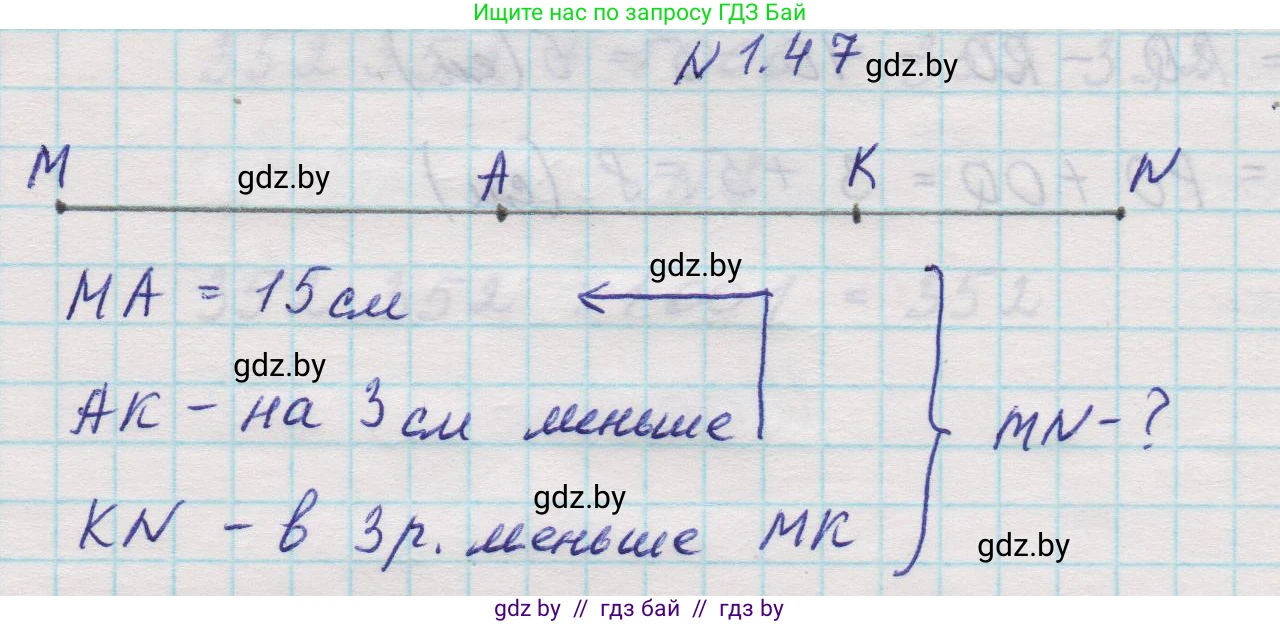 Ищите нас по запросу ГДЗ Бай
N 1.47 gdz.by
M gdz.by A K N
gdz.by
MA = 15 см
gdz.by
AK - на 3 см меньше
MN - ?
gdz.by
KN - в 3 р. меньше MK
gdz.by
gdz by // гдз бай // гдз by